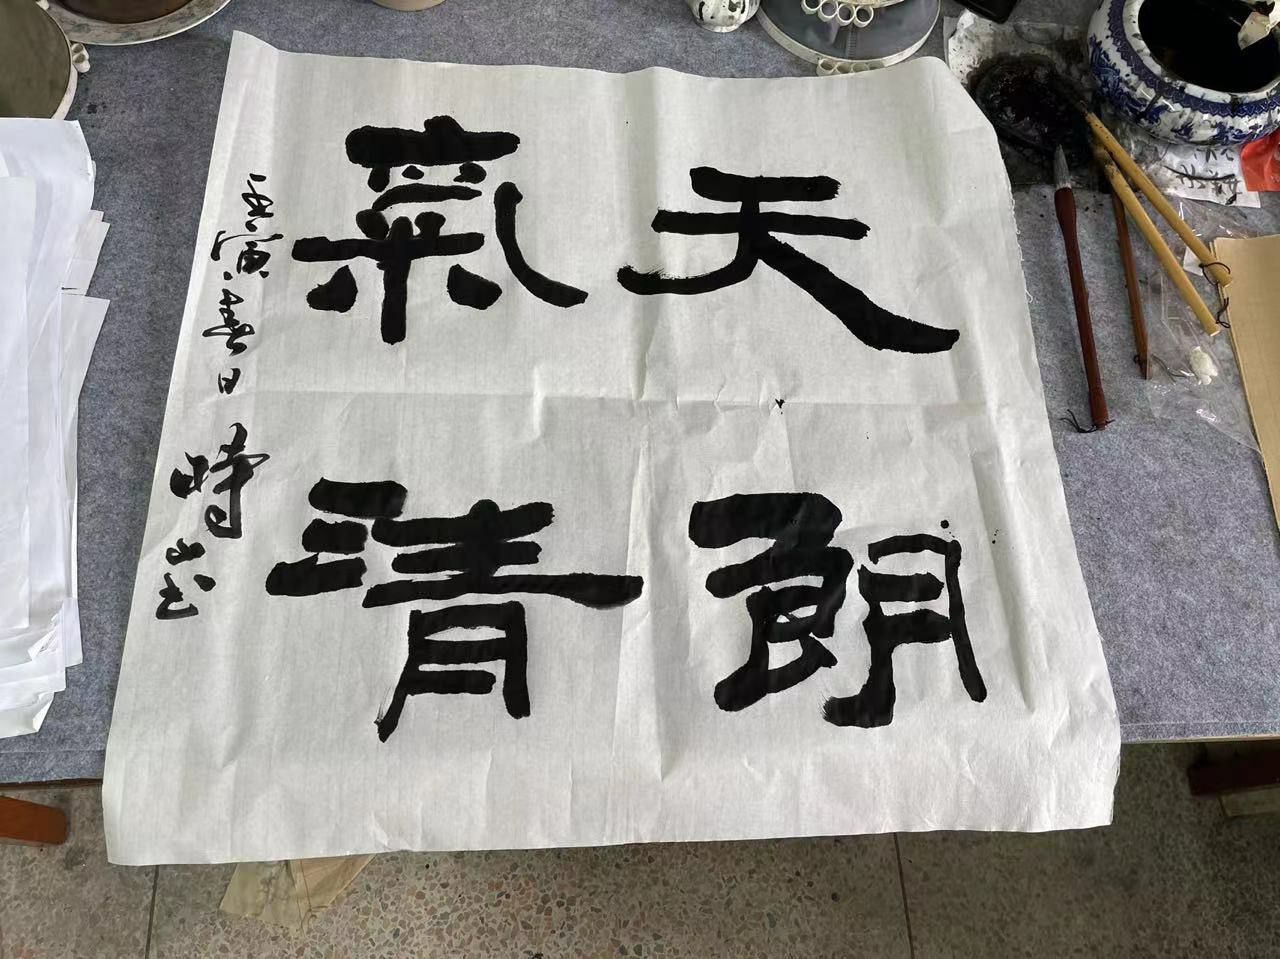 天朗
氣清
壬寅春日 時山书